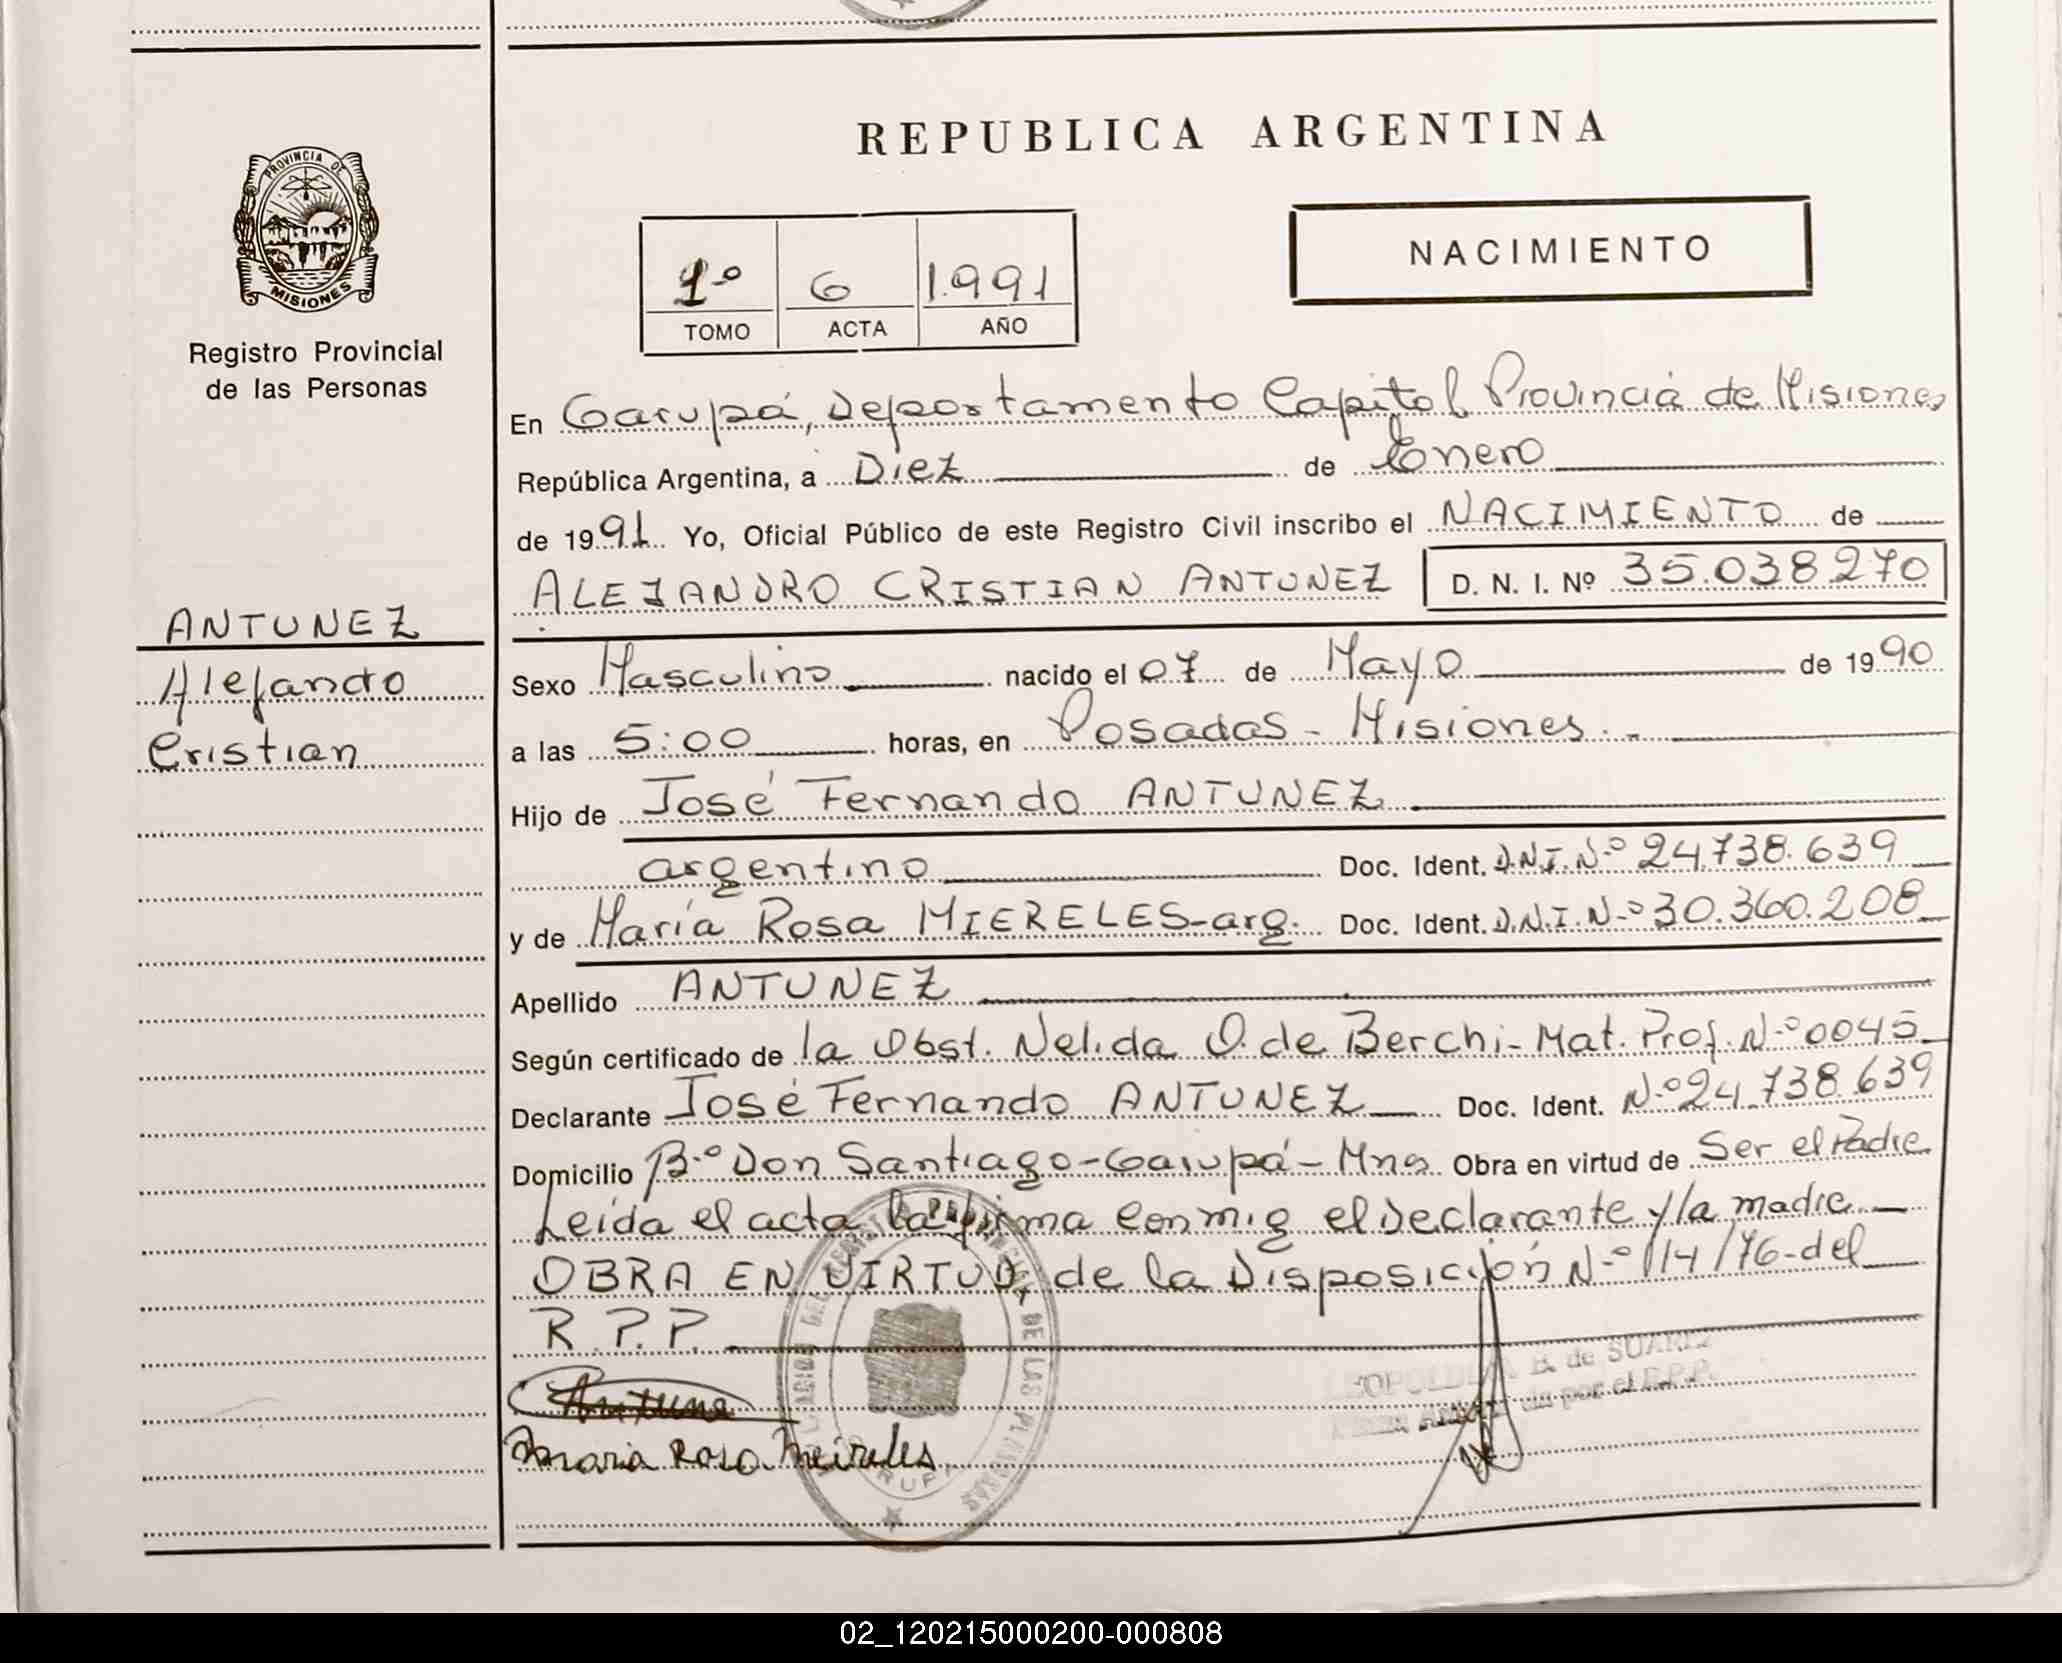 REPUBLICA ARGENTINA
PROVINCIA DE
MISIONES
Registro Provincial
de las Personas
1º 6 1.991
TOMO ACTA AÑO
NACIMIENTO
En Garupá, Departamento Capital Provincia de Misiones
República Argentina, a Diez de Enero
de 1991 Yo, Oficial Público de este Registro Civil inscribo el NACIMIENTO de
ALEJANDRO CRISTIAN ANTUNEZ D. N. I. Nº 35.038.270
ANTUNEZ
Alejandro
Cristian
Sexo Masculino nacido el 07 de Mayo de 1990
a las 5:00 horas, en Posadas - Misiones.
Hijo de José Fernando ANTUNEZ
argentino Doc. Ident. D.N.I.Nº 24.738.639
y de María Rosa MIERELES-arg. Doc. Ident. D.N.I.Nº 30.360.208
Apellido ANTUNEZ
Según certificado de la Obst. Nelida O. de Berchi- Mat. Prof. Nº 0045
Declarante José Fernando ANTUNEZ Doc. Ident. Nº 24.738.639
Domicilio Bº Don Santiago-Garupá-Mns. Obra en virtud de Ser el Padre
Leída el acta la firma conmig el declarante y la madre
OBRA EN VIRTUD de la Disposición Nº 114/76-del
R.P.P.
Antune
Maria Rosa Meireles
DE LAS
de SUAREZ
por el R.P.P.
02_120215000200-000808